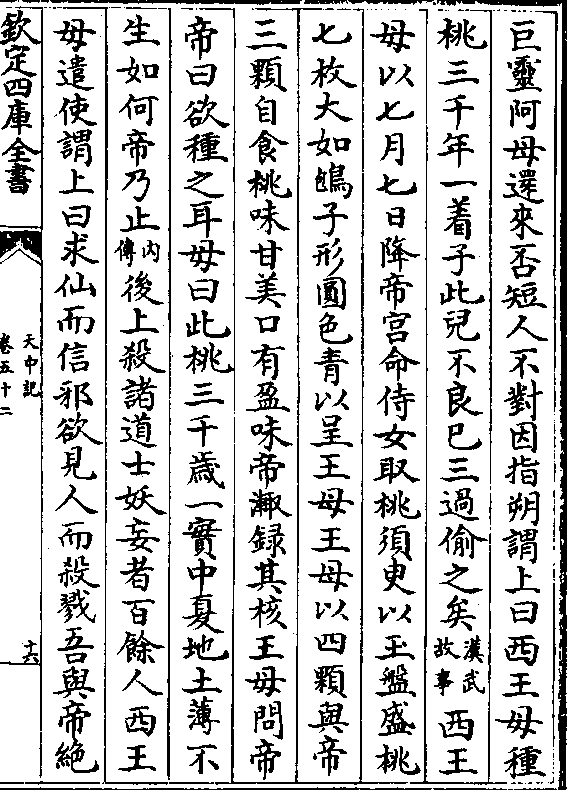 巨靈阿母還來否短人不對因指朔謂上曰西王母種
桃三千年一着子此兒不良已三過偷之矣漢武故事西王
母以七月七日降帝宫命侍女取桃須臾以玉盤盛桃
七枚大如鴄子形圓色青以呈王母王母以四顆與帝
三顆自食桃味甘美口有盈味帝漱録其核王母問帝
帝曰欲種之耳母曰此桃三千歲一實中夏地土薄不
生如何帝乃止内傳後上殺諸道士妖妄者百餘人西王
母遣使謂上曰求仙而信邪欲見人而殺戮吾與帝絶
欽定四庫全書
天中記
卷五十二
十六